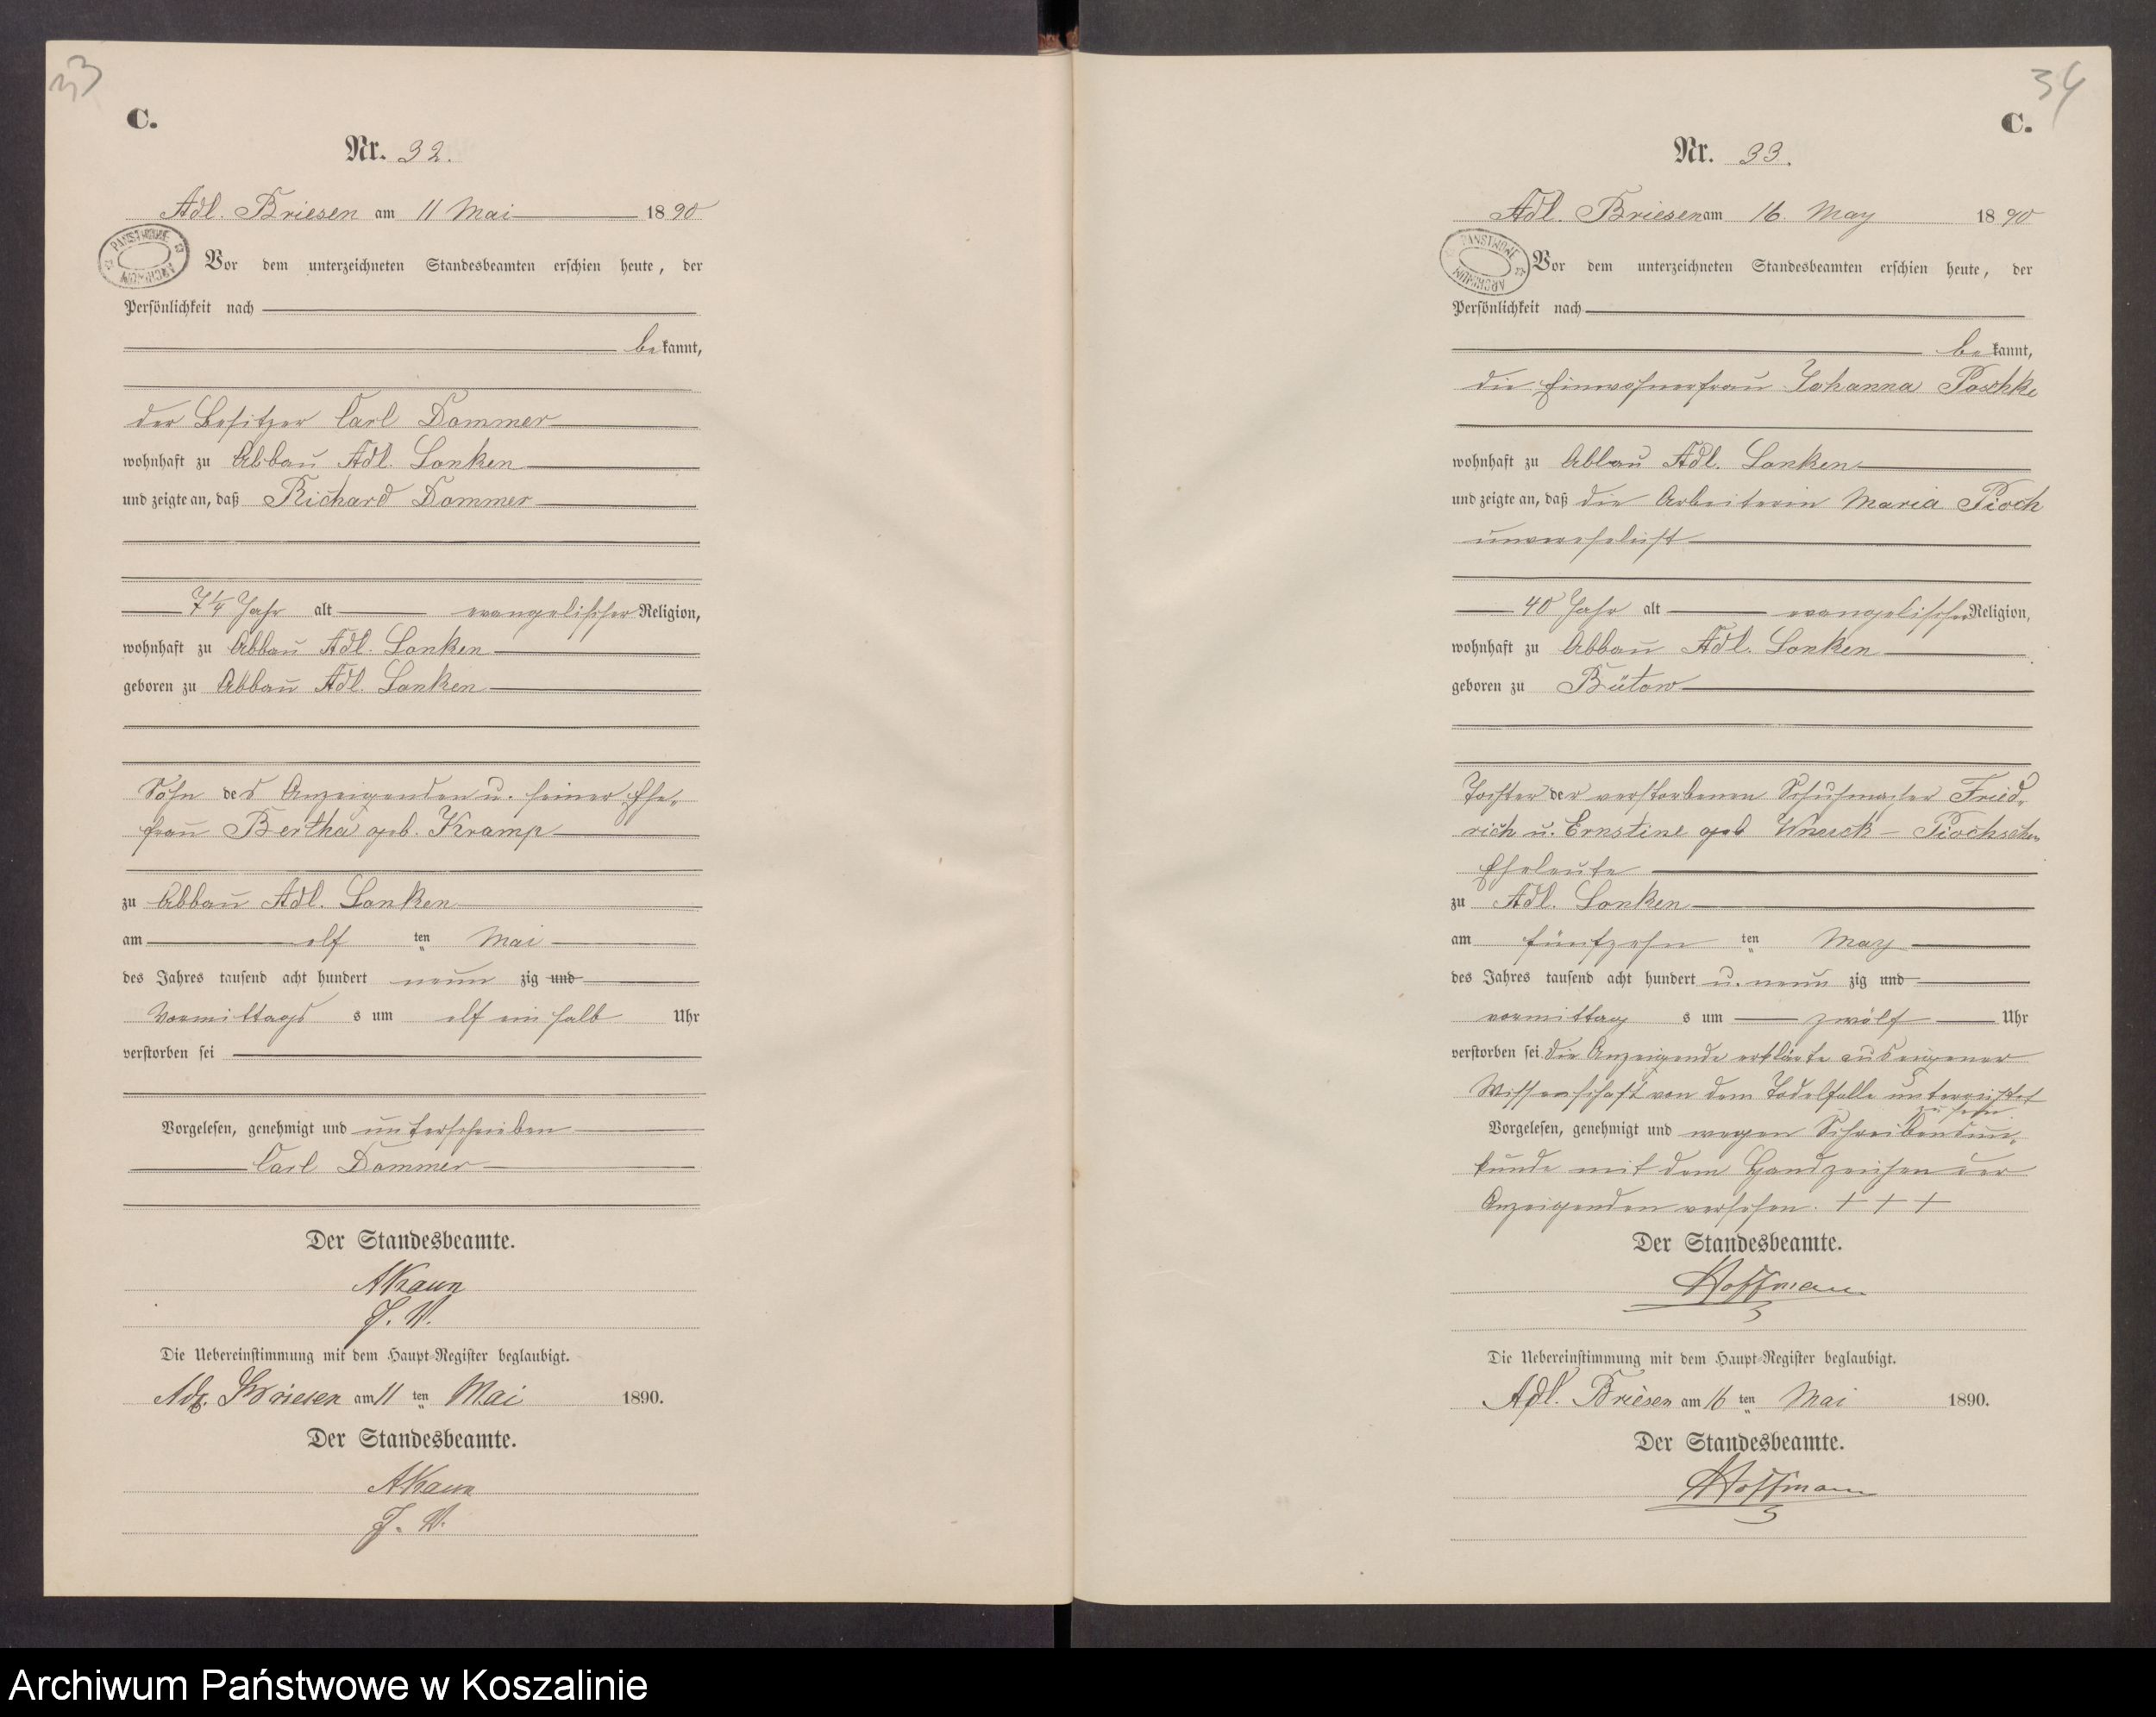 33
C.
Nr. 32.
Adl. Briesen am 11 Mai 1890
PAŃSTWOWE ARCHIWUM
Vor dem unterzeichneten Standesbeamten erschien heute, der
Persönlichkeit nach
bekannt,
der Besitzer Carl Dommer
wohnhaft zu Abbau Adl. Lanken
und zeigte an, daß Richard Dommer
7 1/4 Jahr alt evangelischer Religion,
wohnhaft zu Abbau Adl. Lanken
geboren zu Abbau Adl. Lanken
Sohn des Anzeigenden u. seiner Ehe-
frau Bertha geb. Kramp
zu Abbau Adl. Lanken
am elf ten Mai
des Jahres tausend acht hundert neun zig und
Vormittags s um elf ein halb Uhr
verstorben sei
Vorgelesen, genehmigt und unterschrieben
Carl Dommer
Der Standesbeamte.
AKaun
J. V.
Die Uebereinstimmung mit dem Haupt-Register beglaubigt.
Adl. Briesen am 11 ten Mai 1890.
Der Standesbeamte.
AKaun
J. V.
34
C.
Nr. 33.
Adl. Briesen am 16. May 1890
PAŃSTWOWE ARCHIWUM
Vor dem unterzeichneten Standesbeamten erschien heute, der
Persönlichkeit nach
bekannt,
die Einwohnerfrau Johanna Paschke
wohnhaft zu Abbau Adl. Lanken
und zeigte an, daß die Arbeiterin Maria Pioch
unverehelicht
40 Jahr alt evangelischer Religion,
wohnhaft zu Abbau Adl. Lanken
geboren zu Bütow
Tochter der verstorbenen Schuhmacher Fried-
rich u. Ernstine geb Pioch'schen
Eheleute
zu Adl. Lanken
am fünfzehn ten May
des Jahres tausend acht hundert u. neun zig und
vormittag s um zwölf Uhr
verstorben sei Die Anzeigende erklärte aus eigener
Wissenschaft von dem Todesfalle unterrichtet
zu sein.
Vorgelesen, genehmigt und wegen Schreibensun-
kunde mit dem Handzeichen der
Anzeigenden versehen. + + +
Der Standesbeamte.
Hoffmann
Die Uebereinstimmung mit dem Haupt-Register beglaubigt.
Adl. Briesen am 16 ten Mai 1890.
Der Standesbeamte.
Hoffmann
Archiwum Państwowe w Koszalinie